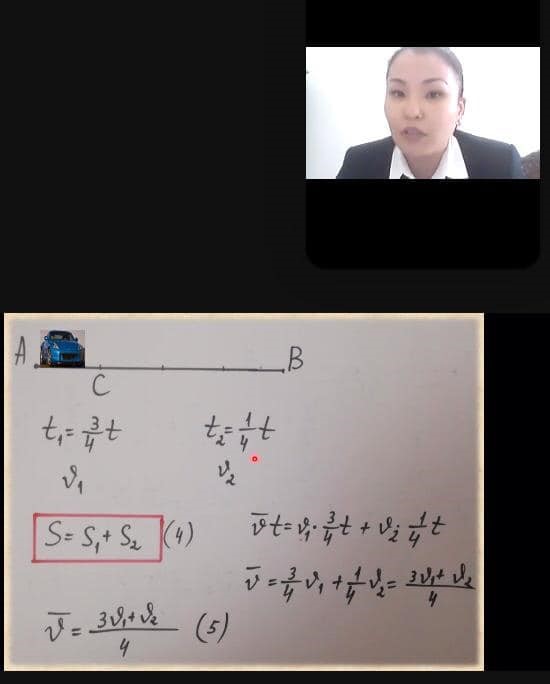 A B
C
t₁ = 3/4 t t₂ = 1/4 t
ϑ₁ ϑ₂
S = S₁ + S₂ (4) ϑ̅t = ϑ₁ · 3/4 t + ϑ₂ · 1/4 t
ϑ̅ = 3/4 ϑ₁ + 1/4 ϑ₂ = (3ϑ₁ + ϑ₂)/4
ϑ̅ = (3ϑ₁ + ϑ₂)/4 (5)